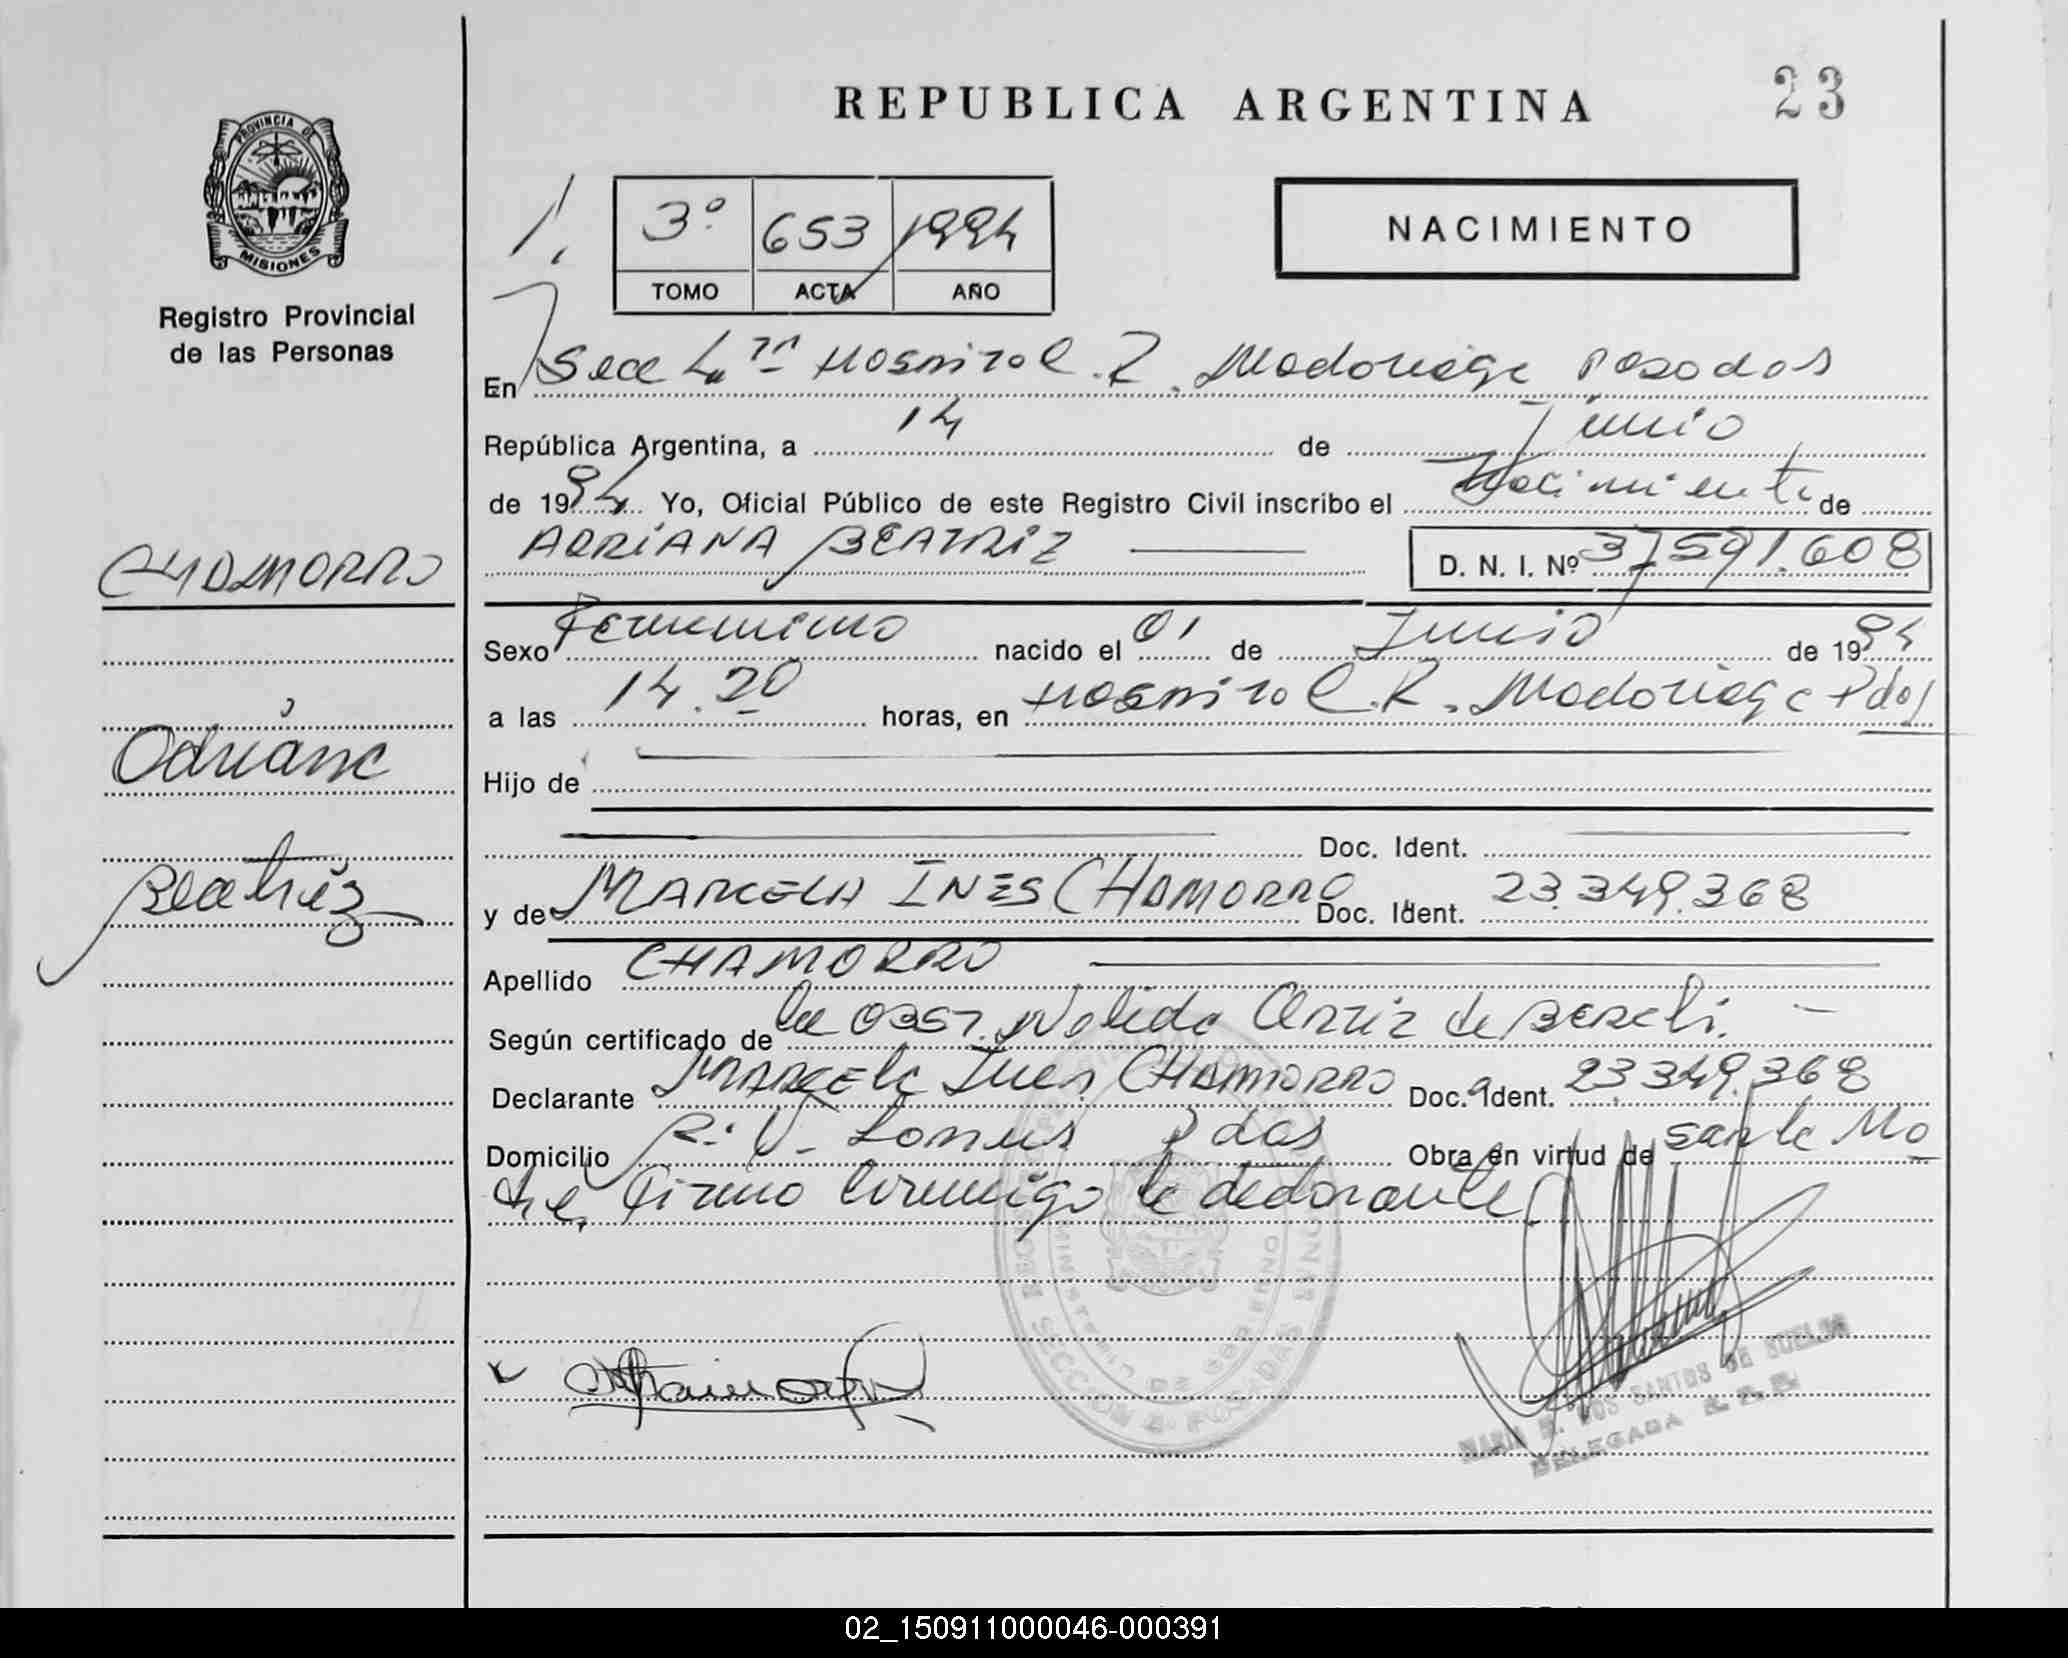 REPUBLICA ARGENTINA
23
PROVINCIA DE
MISIONES
Registro Provincial
de las Personas
3º 653 1994
TOMO ACTA AÑO
NACIMIENTO
En Secc 4ta Hospital R. Madariaga Posadas
República Argentina, a 14 de Junio
de 1994 Yo, Oficial Público de este Registro Civil inscribo el Nacimiento de
ADRIANA BEATRIZ D. N. I. Nº 37591.608
CHAMORRO
Sexo Femenino nacido el 01 de Junio de 1994
a las 14.20 horas, en Hospital R. Madariaga Pdas
Adriana
Hijo de
Doc. Ident.
Beatriz
y de MARCELA INES CHAMORRO Doc. Ident. 23.349.368
Apellido CHAMORRO
Según certificado de la Obst. Nelida de
Declarante MARCELA Ines CHAMORRO Doc. Ident. 23.349.368
Domicilio Pdas Obra en virtud de ser la Ma
dre, Firma Conmigo la declarante
SECCION 4 POSADAS
MINISTERIO DE GOBIERNO
MARIA DOS SANTOS DE
DELEGADA
02_150911000046-000391